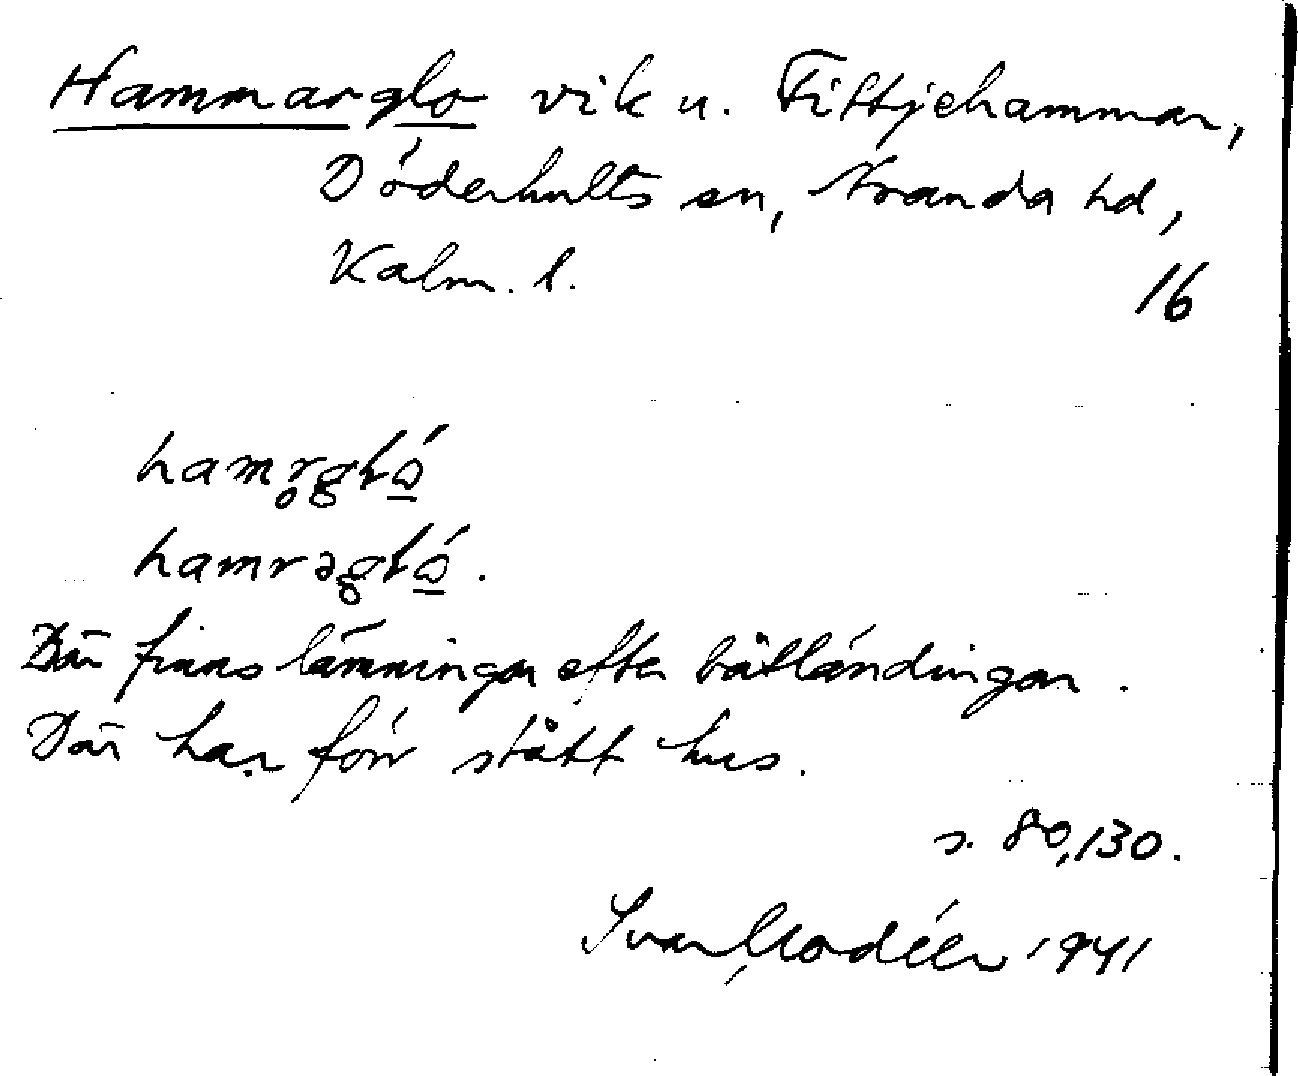 Hammarglo vik u. Fittjehammar,
Döderhults sn, Stranda hd,
Kalm. l.
16
hamr̥gló̱
hamrəgló̱.
Där finns lämningar efter båtländingar.
Där har förr stått hus.
s. 80, 130.
Ivar Modéer 1941